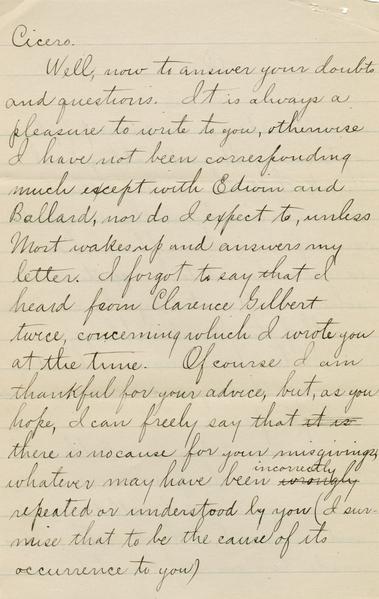 Cicero.
Well, now to answer your doubts
and questions. It is always a
pleasure to write to you, otherwise
I have not been corresponding
much except with Edwin and
Ballard, nor do I expect to, unless
Most wakes up and answers my
letter. I forgot to say that I
heard from Clarence Gilbert
twice, concerning which I wrote you
at the time. Of course I am
thankful for your advice, but, as you
hope, I can freely say that it is
there is no cause for your misgivings,
whatever may have been wrongly incorrectly
repeated or understood by you (I sur-
mise that to be the cause of its
occurrence to you)